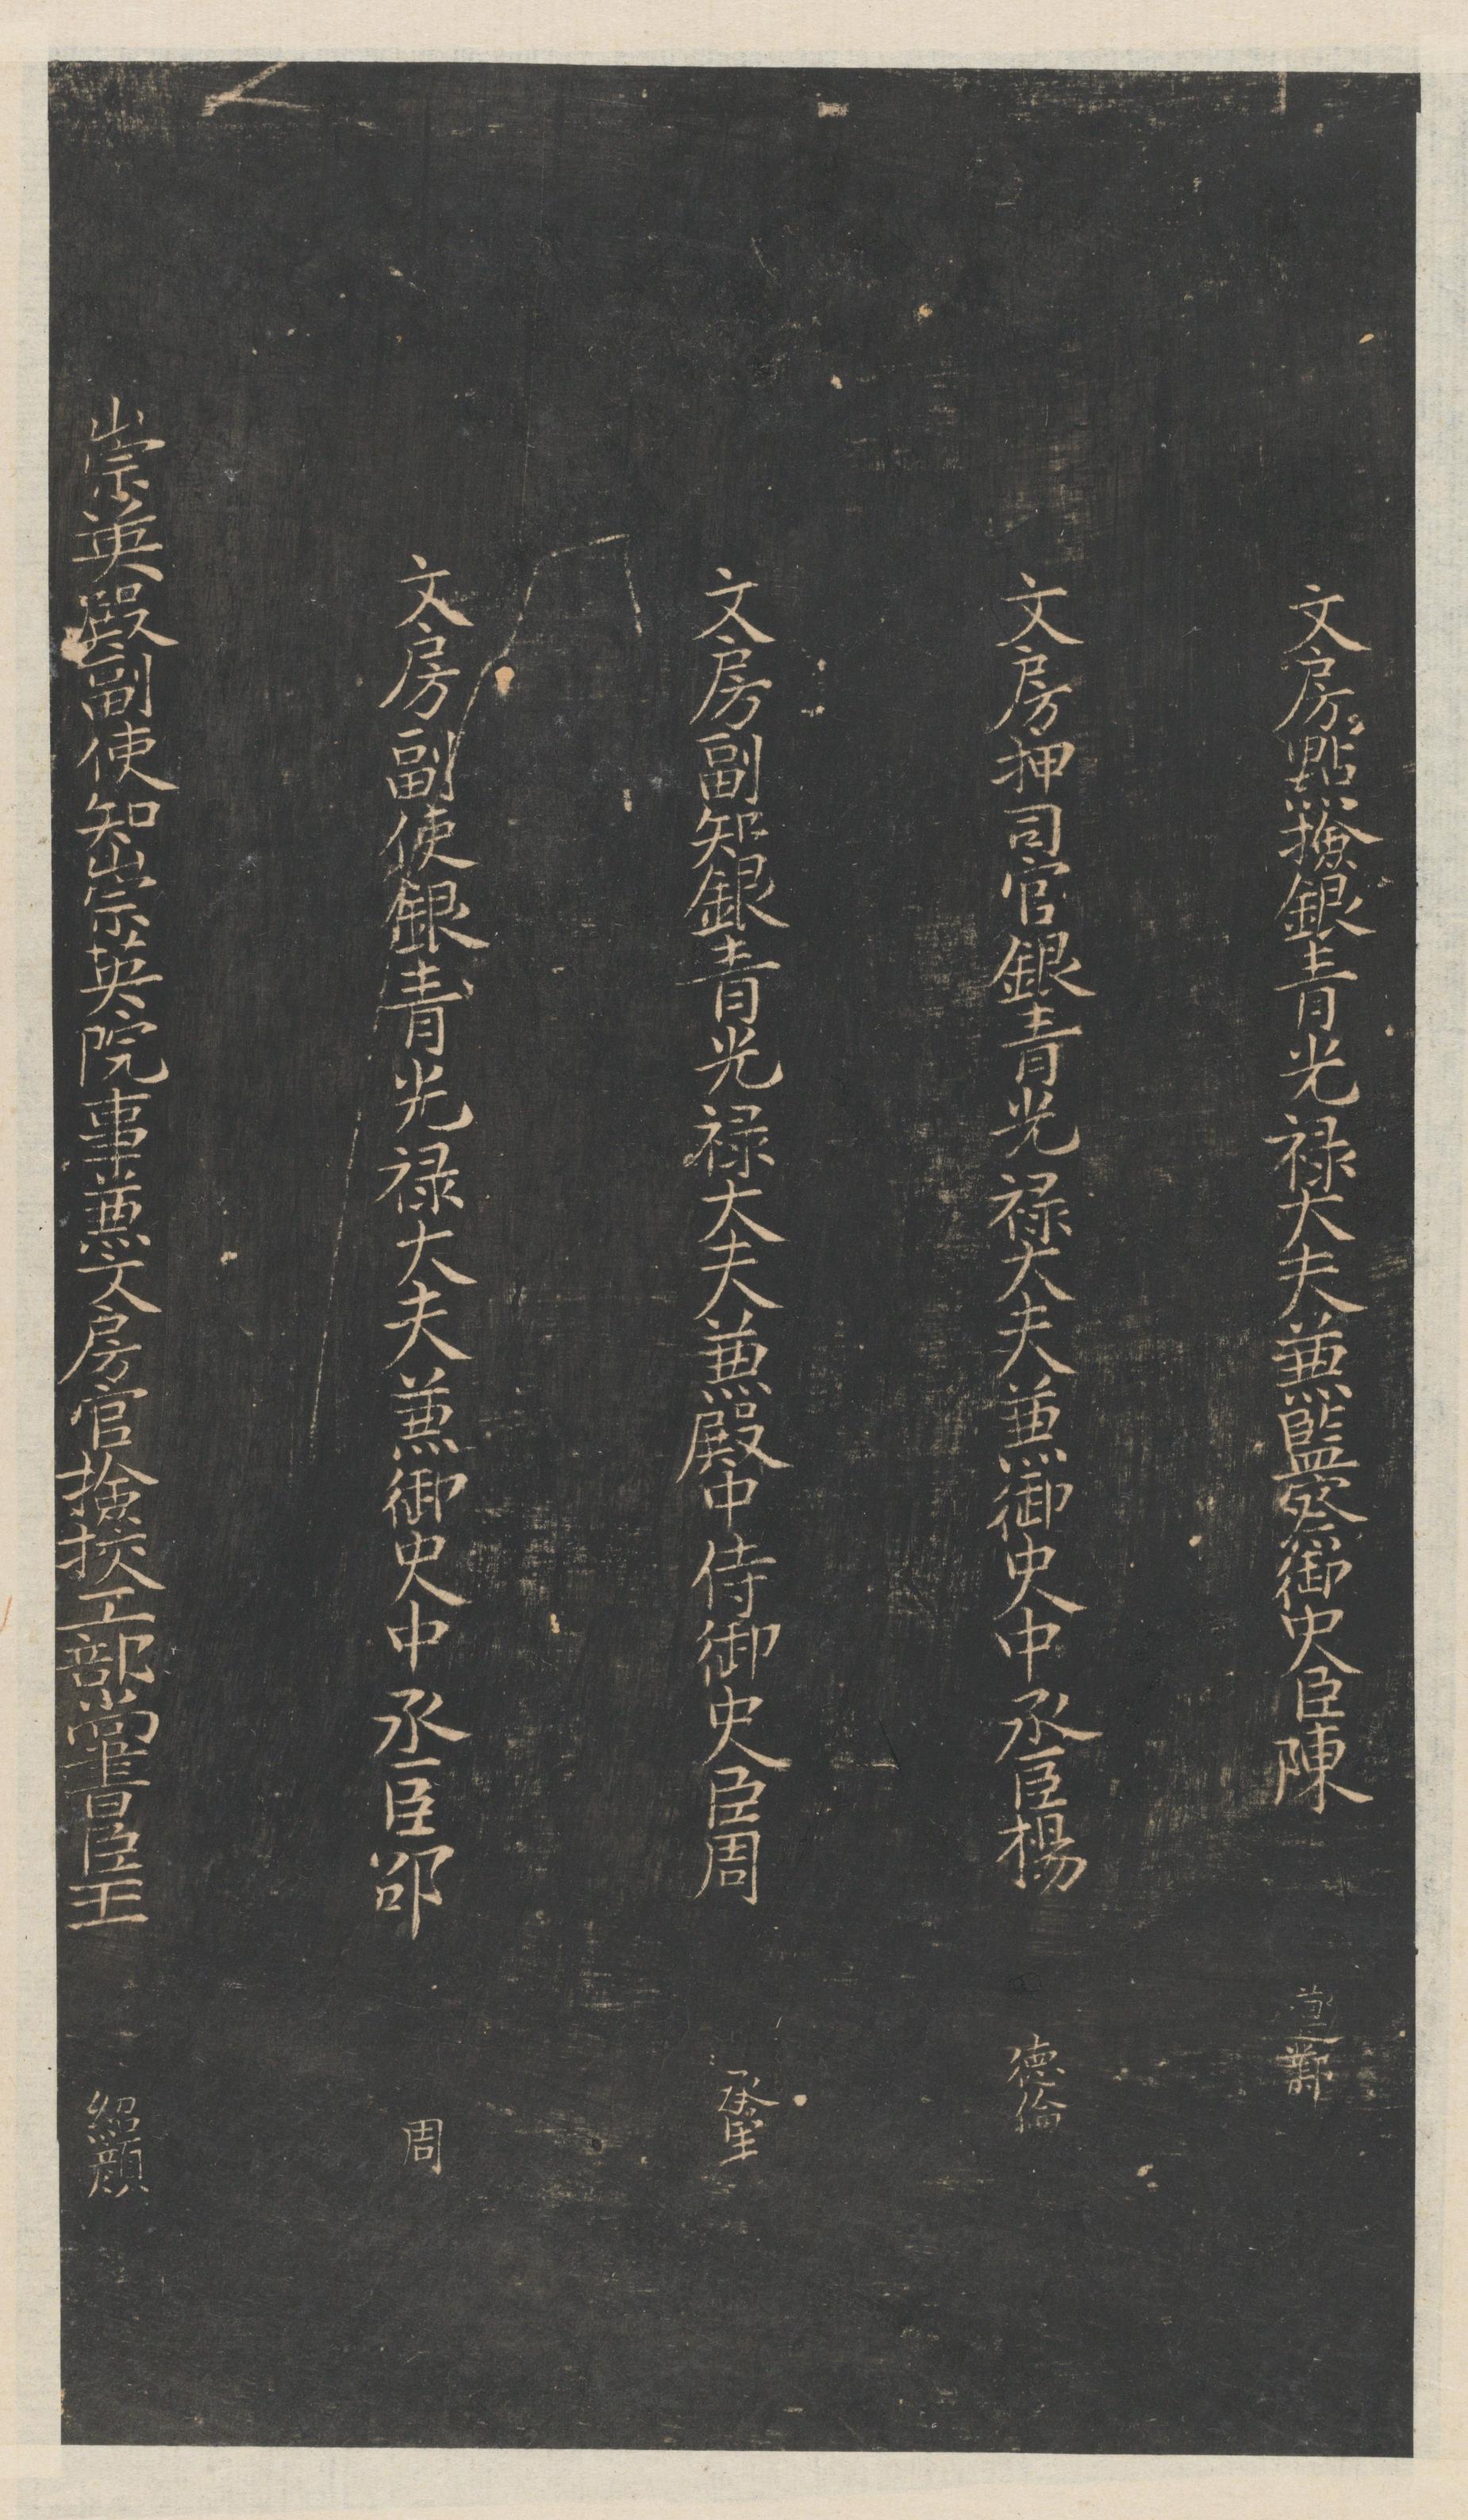 文房點撿銀青光禄大夫兼監察御史臣陳
文房押司官銀青光禄大夫兼御史中丞臣楊 德倫
文房副知銀青光禄大夫兼殿中侍御史臣周
文房副使銀青光禄大夫兼御史中丞臣邵 周
崇英殿副使知崇英院事兼文房官撿挍工部尚書臣王 紹顔